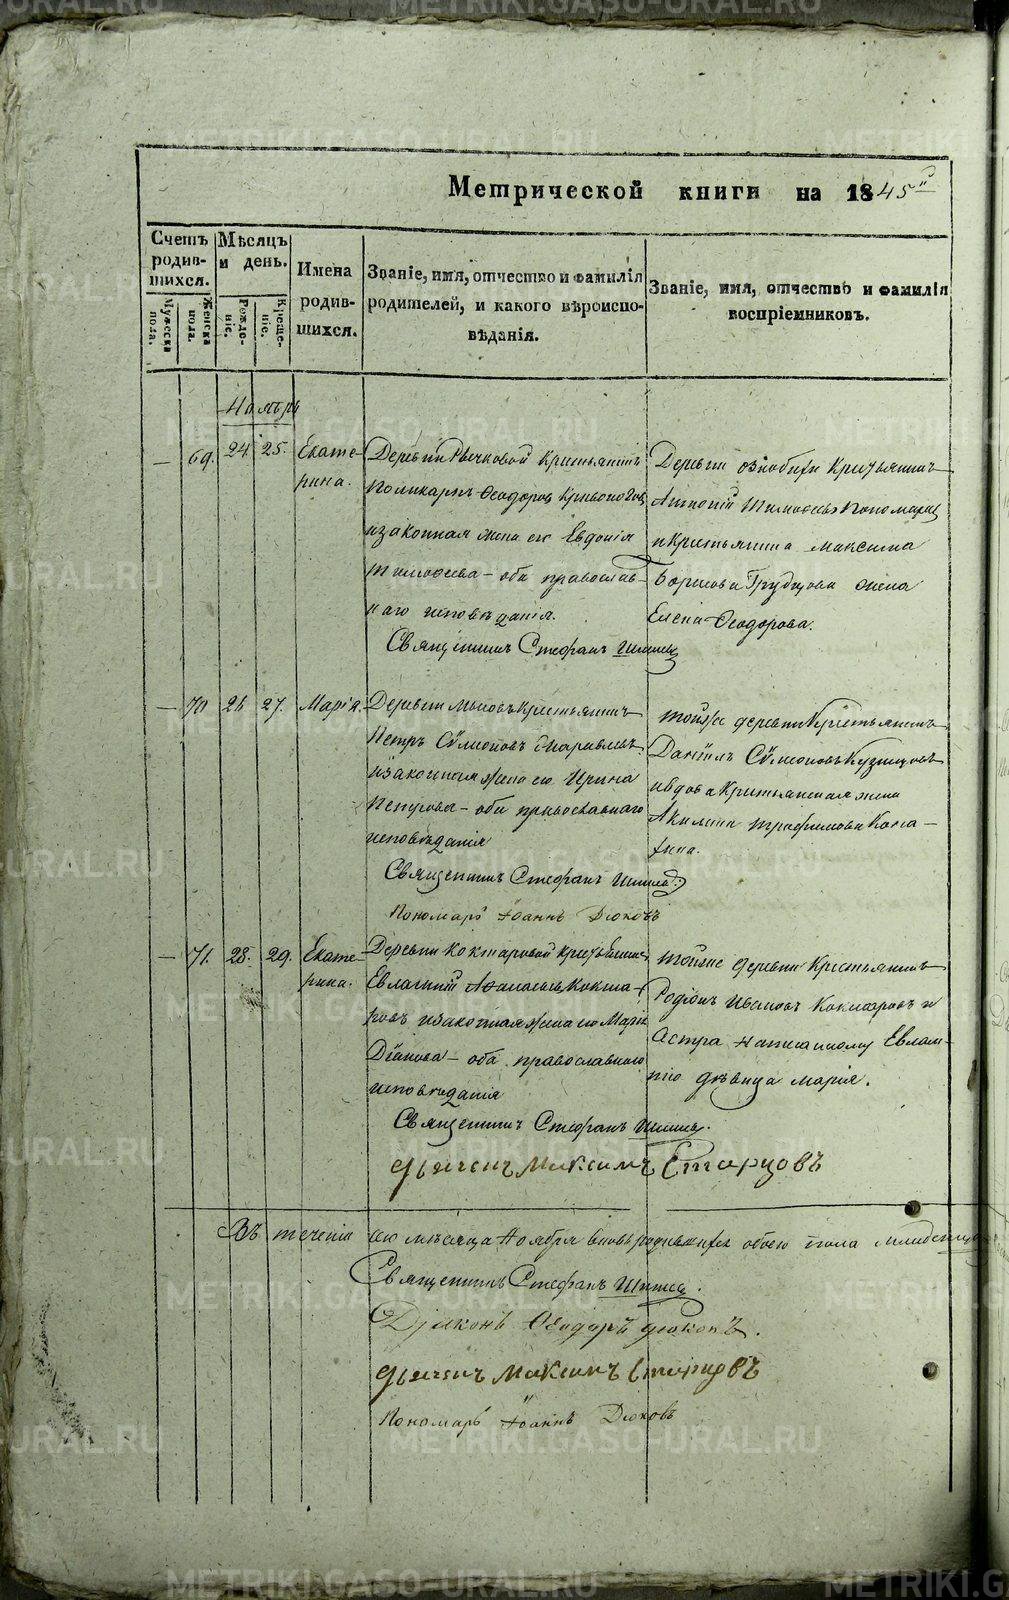 Метрической книги на 1845й
Счетъ родив-
шихся.
Мѣсяцъ
и день.
Имена
родив-
шихся.
Званіе, имя, отчество и фамилія
родителей, и какого вѣроиспо-
вѣданія.
Званіе, имя, отчество и фамилія
воспріемниковъ.
Мужеска
пола.
Женска
пола.
Рожде-
ніе.
Креще-
ніе.
Ноябрь
— 69. 24. 25. Екате-
рина.
Деревни Рычковой Крестьянинъ
Поликарпъ Ѳеодоровъ
и законная жена его Евдокія
Тимоѳеева – оба православ-
наго исповѣданія.
Священникъ Стефанъ
Деревни Крестьянинъ
Антоній Тимоѳеевъ Пономаревъ
и Крестьянина Максима
Борисова жена
Елена Ѳеодорова.
— 70 26 27. Марія.
Деревни Крестьянинъ
Петръ Сѵмеоновъ
и законная жена его Ирина
Петрова – оба православнаго
исповѣданія
Священникъ Стефанъ
Пономарь Іоаннъ Дюковъ
Тойже деревни Крестьянинъ
Даніилъ Сѵмеоновъ Кузнецовъ
и вдова Крестьянская жена
Акилина Трофимова
— 71. 28. 29. Екате-
рина.
Деревни Кокшаровой Крестьянинъ
Евлампій Аѳанасьевъ Кокша-
ровъ и законная жена его Марія
– оба православнаго
исповѣданія
Священникъ Стефанъ
Дьячекъ Максимъ Старцовъ
Тойже деревни Крестьянинъ
Родіонъ Ивановъ Кокшаровъ и
Сестра написанному Евлам-
пію дѣвица Марія.
Въ теченіи сего мѣсяца Ноября вновь родившихся обоего пола младенцевъ
Священникъ Стефанъ
Діаконъ Ѳеодоръ Дюковъ.
Дьячекъ Максимъ Старцовъ
Пономарь Іоаннъ Дюковъ
METRIKI.GASO-URAL.RU